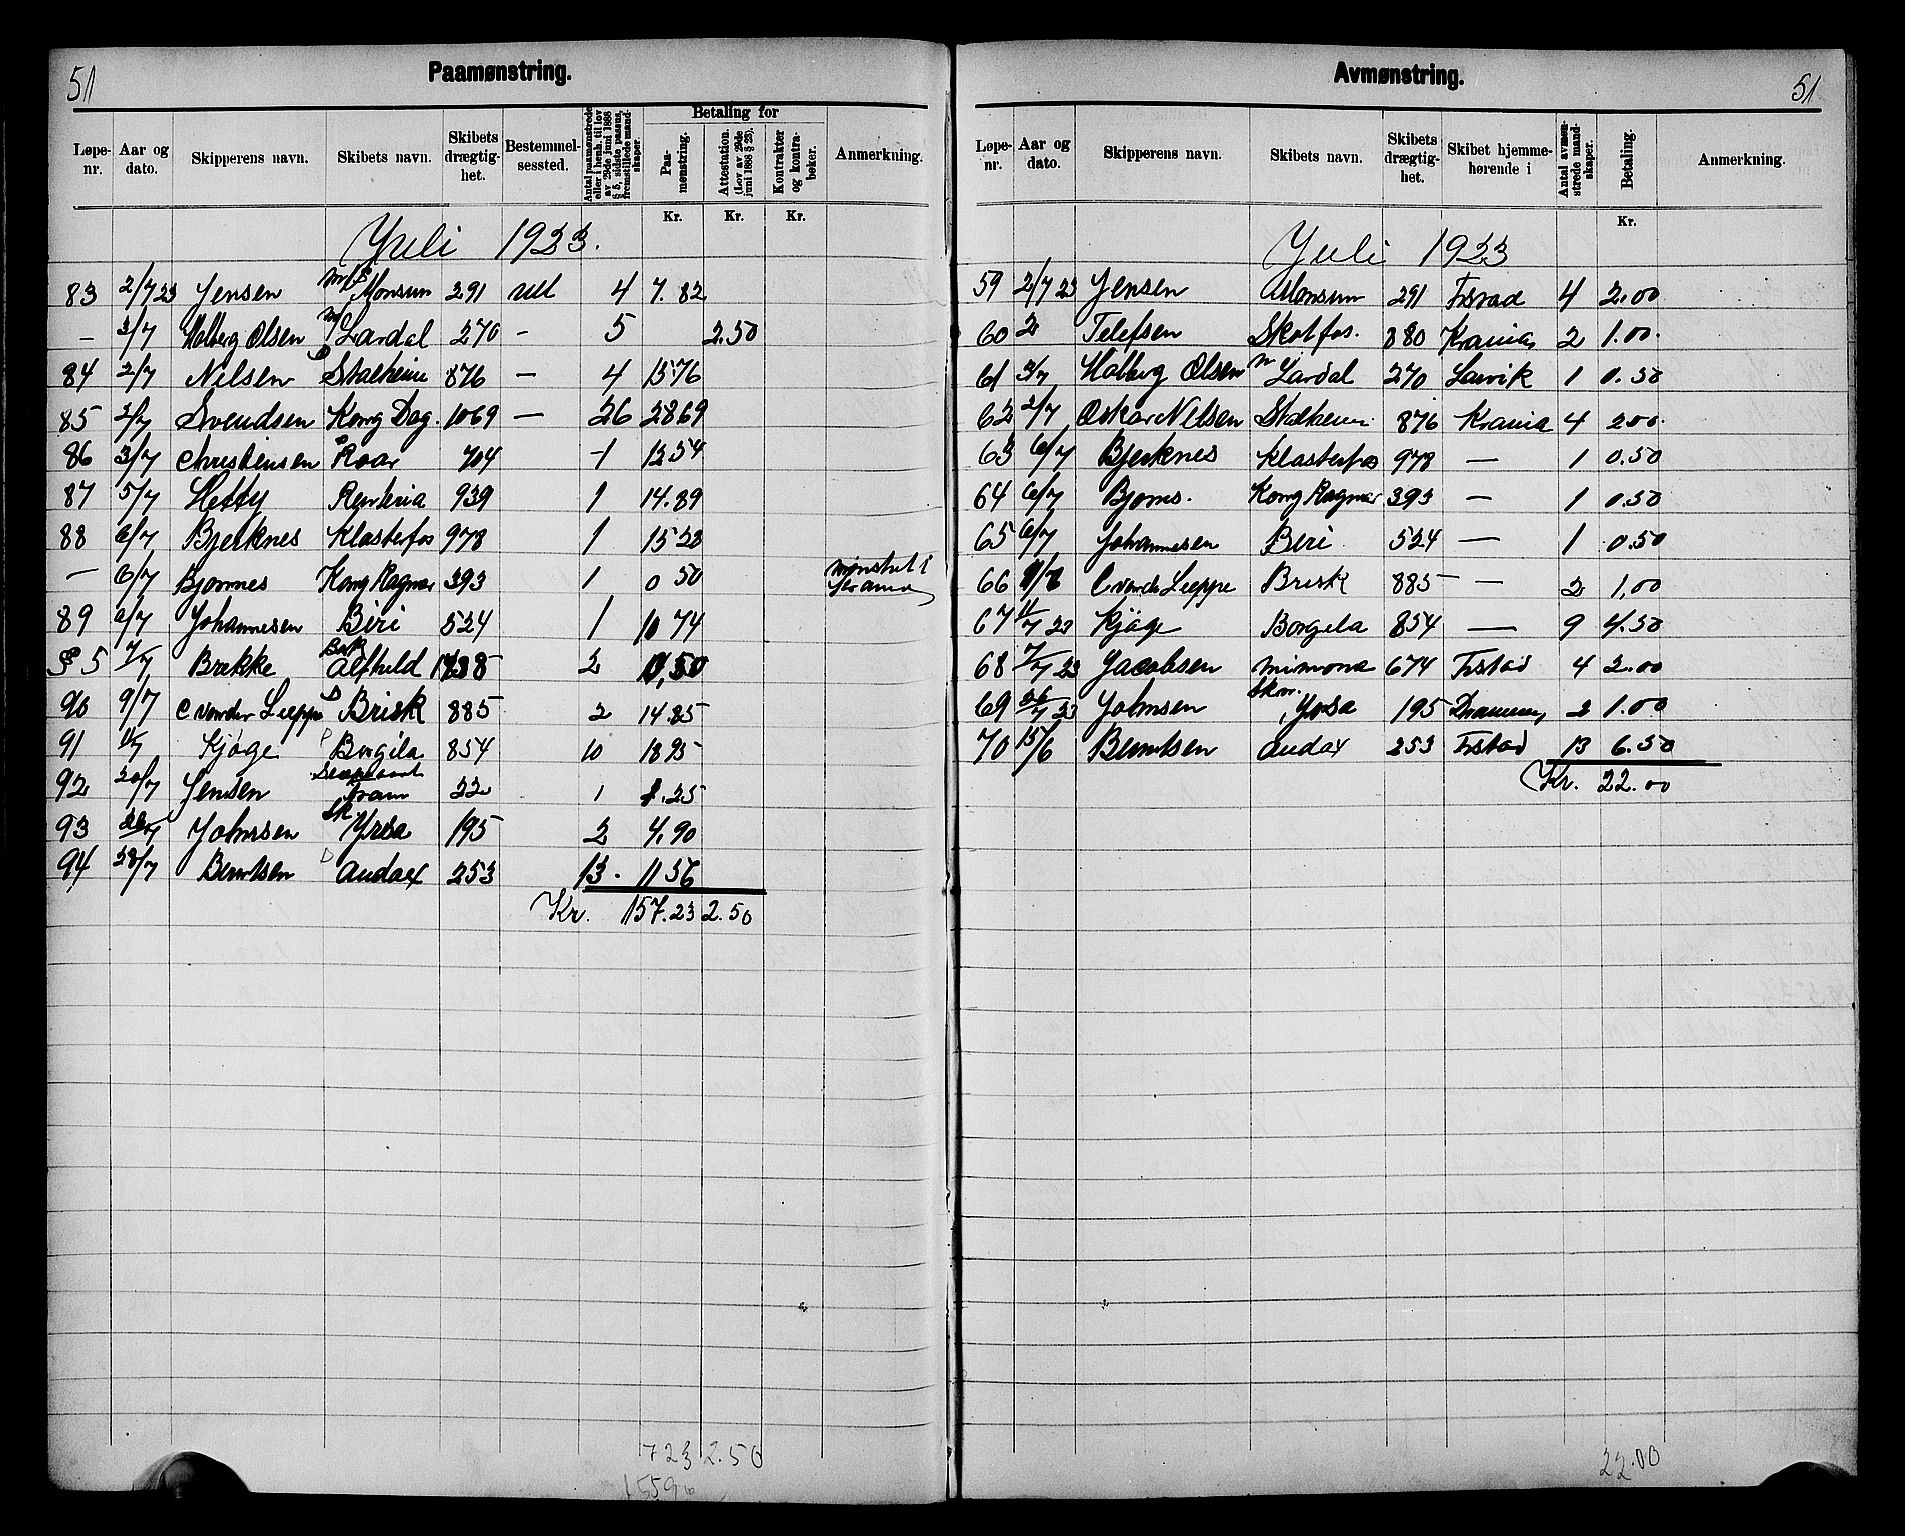 51
Paamønstring.
Løpe-nr. Aar og dato. Skipperens navn. Skibets navn. Skibets drægtig-het. Bestemmel-sessted. Antal paamønstrede eller i henh. til lov av 29de juni 1888 § 5, sidste passus, fremstillede mand-skaper. Betaling for Paa-mønstring. Attestation. (Lov av 29de juni 1888 § 23). Kontrakter og kontra-bøker. Anmerkning.
Kr. Kr. Kr.
Juli 1923.
83 2/7 23 Jensen m/s Monsun 291 utl 4 7.82
— 3/7 Holberg Olsen m/ Lardal 270 – 5 2.50
84 2/7 Nilsen D Stalheim 876 — 4 1576
85 2/7 Svendsen Kong Dag. 1069 — 26 2869
86 3/7 Christensen Roar 704 1 1354
87 5/7 Hetty Renteria 939 1 14.89
88 6/7 Bjerknes Klosterfos 978 1 1528
— 6/7 Bjørnes Kong Ragnar 393 1 0 50 mønstret i
89 6/7 Johannesen Biri 524 1 10 74
7/7 Brekke Bk Alfhild 2
90 9/7 C vonder Lieppe D Brisk 885 2 14.85
91 11/7 Kjöge D Borgila 854 10 1895
92 20/7 Jensen Fram 22 1 1.25
93 26/7 Johnsen Sk Yrsa 195 2 4.90
94 28/7 Berntsen D Audax 253 13. 11 56
Kr. 157.23 2.50
723 2.50
1559
51
Avmønstring.
Løpe-nr. Aar og dato. Skipperens navn. Skibets navn. Skibets drægtig-het. Skibet hjemme-hørende i Antal avmøn-strede mand-skaper. Betaling. Anmerkning.
Kr.
Juli 1923
59 2/7 23 Jensen Monsun 291 Frstad 4 2.00
60 2 Telefsen Skotfos. 380 Krania 2 1.00.
61 3/7 Holberg Olsen m Lardal 270 Larvik 1 0.50
62 2/7 Oskar Nilsen Stalheim 876 Krania 4 200.
63 6/7 Bjerknes Klosterfos 978 — 1 0.50
64 6/7 Bjorns. Kong Ragnar 393 — 1 0.50
65 6/7 Johannesen Biri 524 — 1 0.50
66 9/7 C vonder Lieppe Brisk 885 — 2 1,00
67 11/7 23 Kjöge Borgila 854 — 9 4.50
68 7/7 23 Jacobsen Mimona 674 Frstad 4 2.00
69 26/7 23 Johnsen Skon. Yrsa 195 Drammen 2 1.00
70 15/6 Berntsen Audax 253 Frstad 13 6.50
Kr. 22.00
22.00